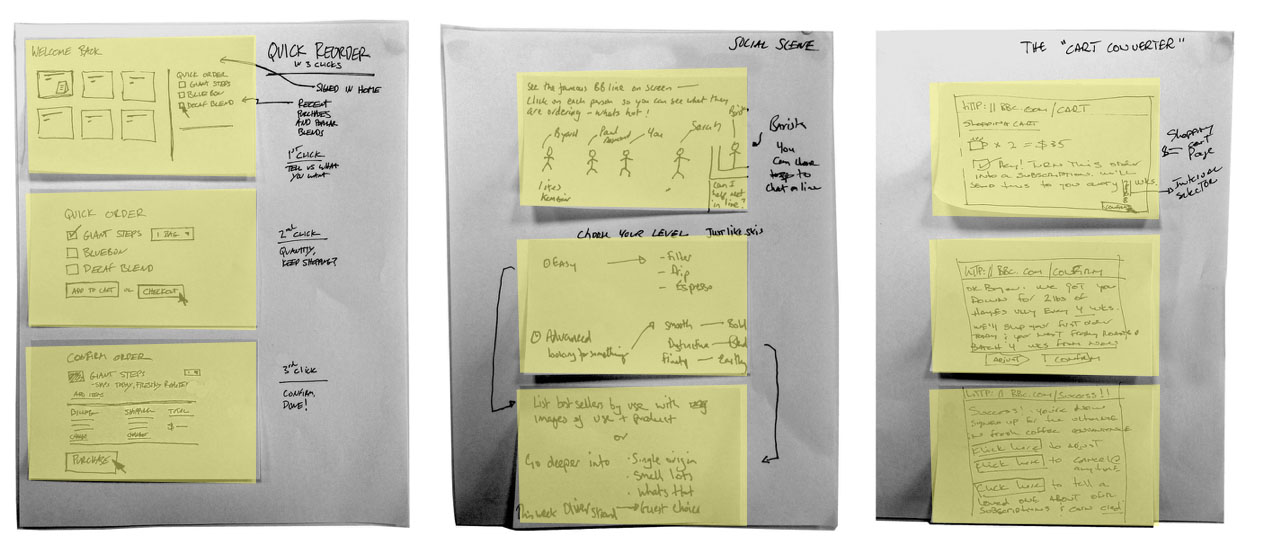 QUICK REORDER
IN 3 CLICKS
WELCOME BACK
QUICK ORDER
GIANT STEPS
BLUEBON
DECAF BLEND
SIGNED IN HOME
RECENT
PURCHASES
AND
BLENDS
1ST CLICK
TELL US WHAT
YOU WANT
QUICK ORDER
GIANT STEPS 1 BAG
BLUEBON
DECAF BLEND
ADD TO CART OR CHECKOUT
2nd CLICK
QUANTITY,
KEEP SHOPPING?
CONFIRM ORDER
GIANT STEPS
ADD ITEMS
BILLING SHIPPING TOTAL
$ —
CHANGE CHANGE
PURCHASE
3rd CLICK
CONFIRM,
DONE!
SOCIAL SCENE
See the famous BB line on screen —
Click on each person so you can see what they
are ordering – whats hot!
Bryan Paul You Sarah
likes
Can I
help next
in line?
Barista
You
Can
to
Chat line
YOUR LEVEL Just like
Easy
- Filter
- Drip
- Espresso
Advanced
looking for something
Smooth — Bold
Fruity — Earthy
List best sellers by use with
images of use + product
or
Go deeper into
· Single origin
· Small lots
· Whats Hot
This week Oliver Strand → Guest Choice
THE "CART CONVERTER"
HTTP://BBC.COM/CART
SHOPPING CART
x 2 = $35
HEY! TURN THIS ORDER
INTO A SUBSCRIPTION. WE'LL
SEND THIS TO YOU EVERY WKS.
Shopping
Cart
Page
Selector
HTTP://BBC.COM/CONFIRM
OK BRYAN. WE GOT YOU
DOWN FOR 2 LBS OF
EVERY 4 WKS.
WE'LL SHIP YOUR FIRST ORDER
TODAY & YOUR NEXT FRESHLY ROASTED
BATCH 4 WKS FROM NOW
ADJUST CONFIRM
HTTP://BBC.COM/SUCCESS!!
SUCCESS! YOU'RE NOW
SIGNED UP FOR THE ULTIMATE
IN FRESH COFFEE CONVENIENCE
Click here to ADJUST
Click here to CANCEL
anytime
Click here to tell a
LOVED ONE ABOUT OUR
SUBSCRIPTIONS &